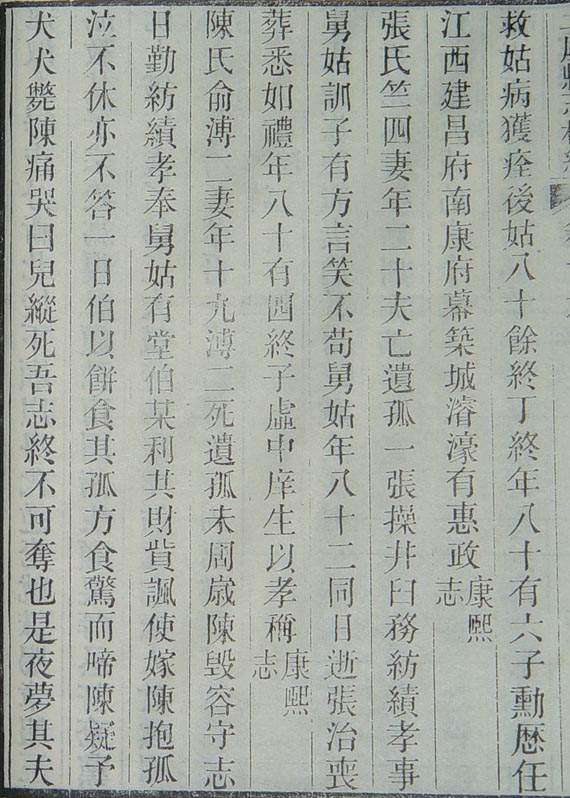 救姑病獲痊後姑八十餘終丁終年八十有六子勳歴任
江西建昌府南康府幕築城濬濠有惠政康熙志
張氏竺四妻年二十夫亡遺孤一張操井臼務紡績孝事
舅姑訓子有方言笑不苟舅姑年八十二同日逝張治喪
葬悉如禮年八十有四終子虛中庠生以孝稱康熙志
陳氏俞溥二妻年十九溥二死遺孤未周歲陳毁容守志
日勤紡績孝奉舅姑有堂伯某利其財貲諷使嫁陳抱孤
泣不休亦不答一日伯以餅食其孤方食驚而啼陳疑予
犬犬斃陳痛哭曰兒縱死吾志終不可奪也是夜夢其夫